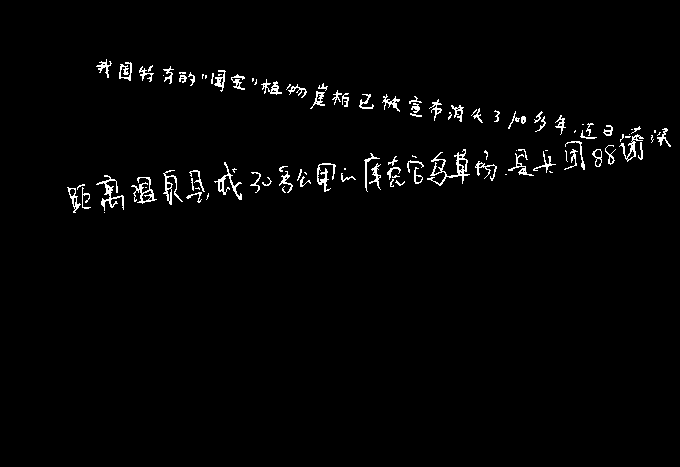 我国特有的"国宝"植物崖柏已被宣布消失了100多年,近日
距离温泉县城30多公里的库克它乌草场是兵团88团